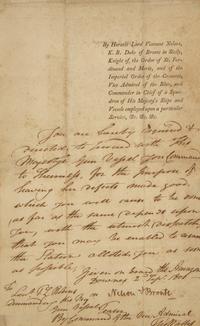 By Horatio Lord Viscount Nelson,
K. B. Duke of Bronte in Sicily,
Knight of the Order of St. Ferdinand
and Merit, and of
the Imperial Order of the Crescent,
Vice Admiral of the Blue, and
Commander in Chief of a Squadron
of His Majesty's Ships and
Vessels employed upon a particular
Service, &c. &c. &c.
You are hereby required &
directed, to proceed with His
Majesty's Gun Vessel you Command
to Sheerness, for the purpose of
having her defects made good,
which you will cause to be done
(as far as the same depends upon
you) with the utmost
that you may be enabled to
the Station allotted you as soon
as possible.
Given on board the Amazon
Downs
Nelson & Bronte
To
Commanding His
Gun Vessel
By Command of the Vice Admiral